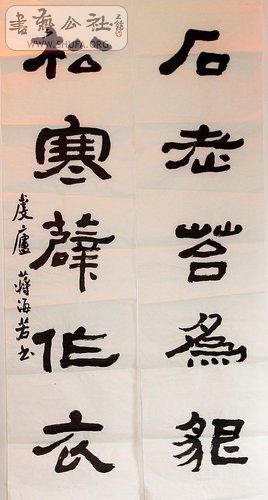 石老苔為貌
松寒薜作衣
虔廬 蒋海若书
書藝公社
WWW.SHUFA.ORG